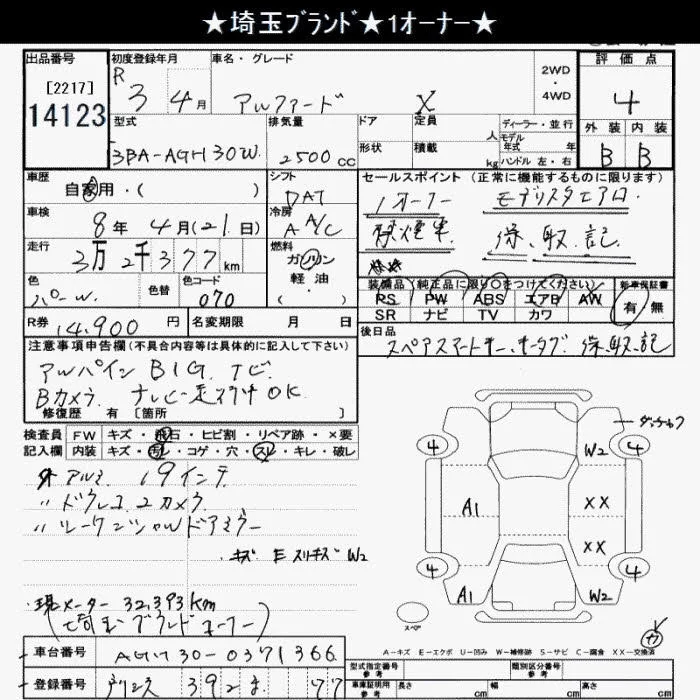 ★埼玉ﾌﾞﾗﾝﾄﾞ★1オーナー★
出品番号 初度登録年月 車名・グレード 2WD・4WD 評価点
[2217]
14123
R 3年 4月 アルファード X 4
型式 排気量 ドア 定員 人 ディーラー・並行 外装 内装
モデル年式 年
3BA-AGH30W 2500CC 形状 積載 kg ハンドル 左・右 B B
車歴 シフト セールスポイント (正常に機能するものに限ります)
自家用・( ) DAT 1オーナー モデリスタエアロ
車検 冷房 禁煙車 保、取、記
8年 4月(21日) A A/C
走行 燃料
3万2千377km ガソリン 軽油
色 色替 色コード 装備品(純正品に限り○をつけてください) 新車保証書
パｰルW. 070 PS PW ABS エアB AW 有・無
SR ナビ TV カワ
R券 14,900円 名変期限 月 日 後日品
スペアスマートキー、オータグ 保、取、記
注意事項申告欄(不具合内容等は具体的に記入して下さい)
アルパイン BIG ナビ
Bカメラ ナビレ走行中OK
修復歴 有 [箇所 ]
検査員 FW キズ・飛石・ヒビ割・リペア跡・×要
記入欄 内装 キズ・汚レ・コゲ・穴・スレ・キレ・破レ
外アルミ 19インチ
〃ドラレコ 2カメラ
〃シーケンシャルドアミラー
・キズ E スリキズ W2
・現メーター 32,393Km
(埼玉ブランドオーナー)
4 W2 4
A1 XX
XX
4 4
A1 W2
スペア
A－キズ E－エクボ U－凹み W－補修跡 S－サビ C－腐食 XX－交換済
車台番号 AGH30-0371366
登録番号 392 77
型式指定番号 参考 類別区分番号 参考
車庫証明用 参考 長さ cm 幅 cm 高さ cm